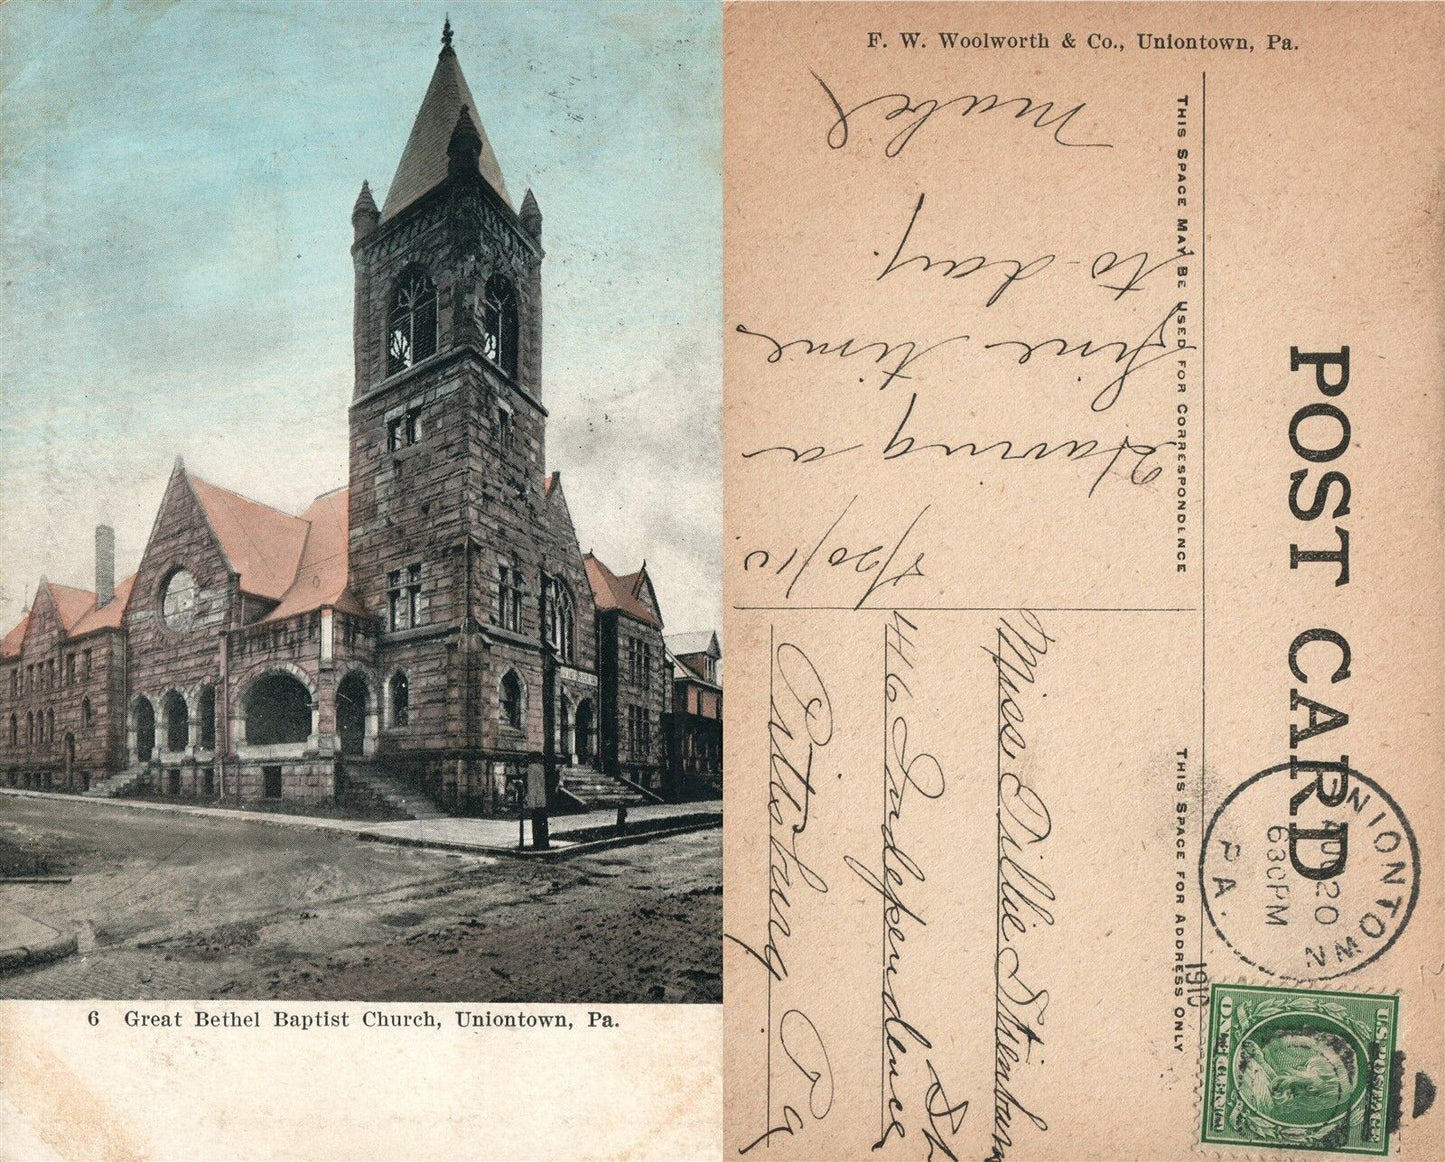 6 Great Bethel Baptist Church, Uniontown, Pa.
F. W. Woolworth & Co., Uniontown, Pa.
POST CARD
THIS SPACE MAY BE USED FOR CORRESPONDENCE
THIS SPACE FOR ADDRESS ONLY
8/20/10.
Having a
fine time
to-day.
Mabel
Miss Tillie
416 Independence St
Pittsburg Pa
UNIONTOWN
AUG 20
630PM
1910
PA.
U.S. POSTAGE
ONE CENT